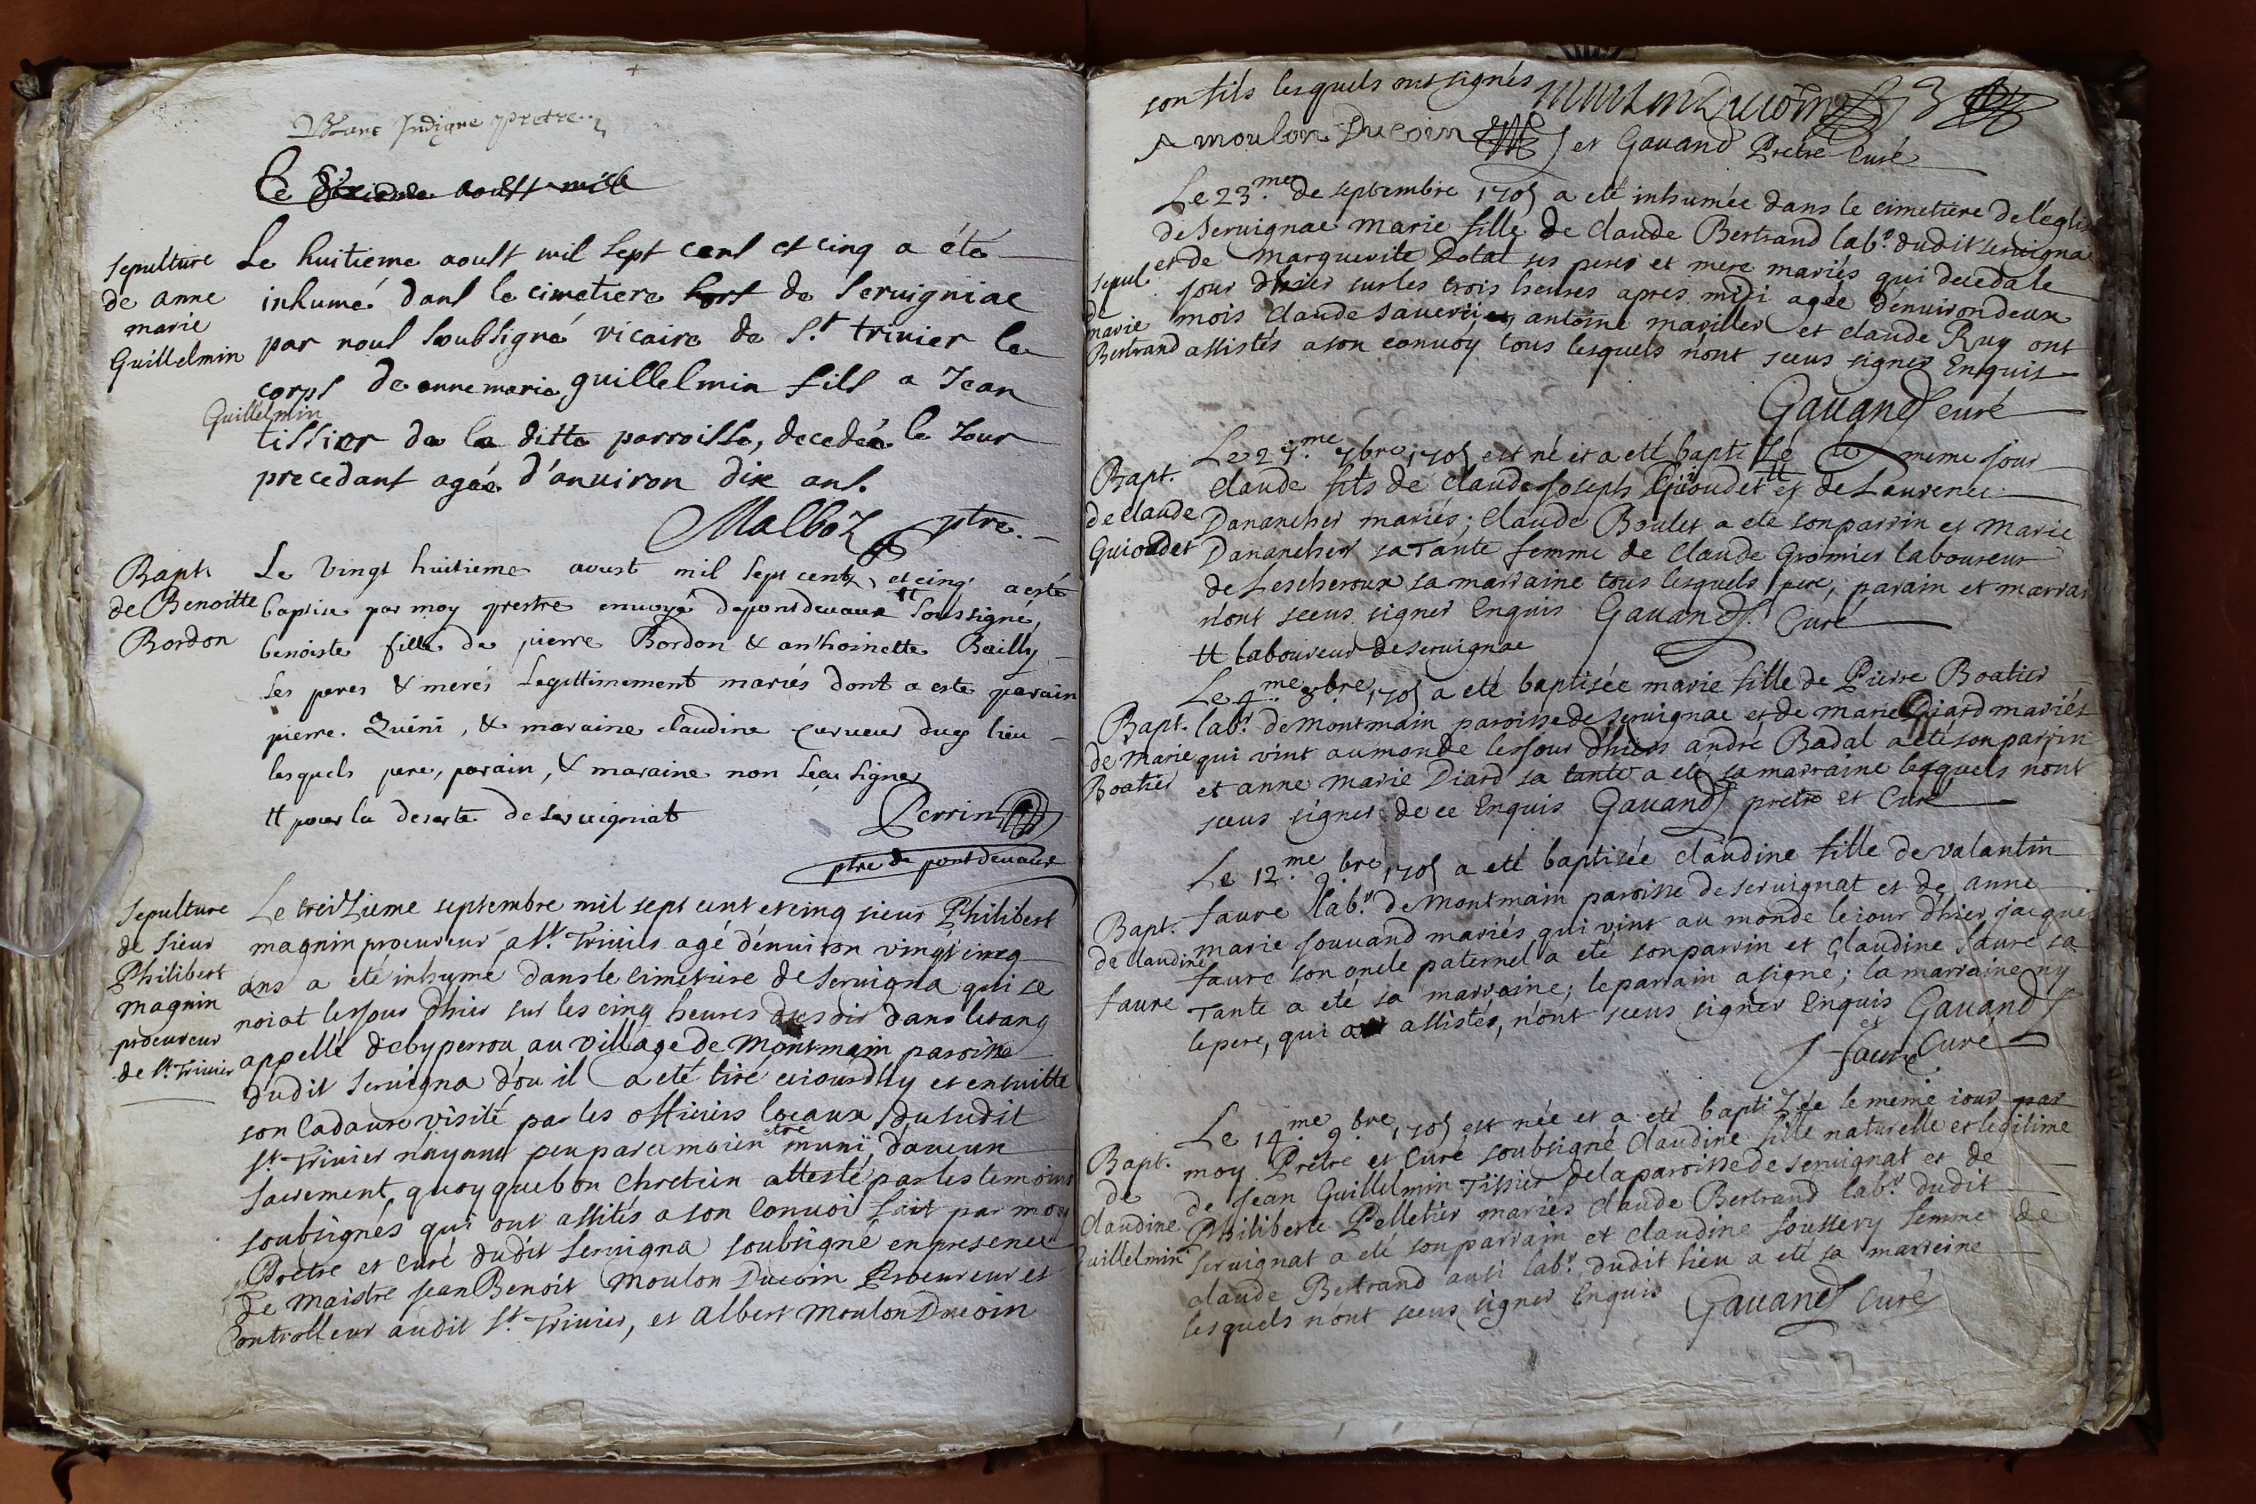 Blanc Indigne pretre
Le Sixieme aoust mill
sepulture
de anne
marie
Guillelmin
Le huitieme aoust mil sept cent et cinq a été
inhumé dans le cimetiere hors de Seruigniac
par nous soubsigné vicaire de St. trivier le
corps de anne marie guillelmin fils a Jean
Guillelmin
tissier de la ditte parroisse, decedée le Jour
precedant agée d'anuiron dix ans.
Malboz ptre.
Bapt.
de Benoitte
Bordon
Le Vingt huitieme aoust mil sept cent, et cinq a esté
baptise par moy prestre enuoyé depontdeuaux tt Soussigné,
benoiste fille de pierre Bordon & anthoinette Bailly
ses peres & meres Legittimement mariés dont a este parain
pierre. Quini, & maraine claudine Curueur dud lieu
lesquels pere, parain, & maraine non sçeu signer
tt pour la deserte de seruigniat
Perrin
ptre de pontdeuaux
sepulture
de sieur
Philibert
magnin
procureur
de St. Triuier
Le treizieme septembre mil sept cent et cinq sieur Philibert
magnin procureur a St. Triuier agé dénuiron vingt cinq
ans a été inhumé dans le cimetiere de Seruigna qui se
noiat le jour d'hier sur les cinq heures du soir dans letang
appellé de byperrou au village de Montmain paroisse
dudit Seruigna d'ou il a eté tiré ciourdhy et ensuitte
son Cadaure visité par les officiers locaux du sudit
St. Triuier n'ayant peu par ce moien etre muni d'aucun
sacrement, quoy que bon chretien attesté par les temoins
soubsignés qui ont assités a son Conuoi fait par moy
Pretre et Curé dudit Seruigna soubsigné en presence
de Maistre Jean Benoit Moulon Ducoin Procureur et
Controlleur audit St. Triuier, et Albert Moulon Ducoin
son fils lesquels ont signés Moulon Ducoin 3
A moulon Ducoin et Gauand Pretre Curé
sepul.
de
marie
Bertrand
Le 23.me de septembre 1705 a eté inhumée dans le cimetiere de l'eglise
de Seruignac marie fille de claude Bertrand lab.r dudit seruigna
et de marguerite Dotal ses peres et mere mariés qui deceda le
jour d'hier sur les trois heures apres midi agée denuiron deux
mois claude sauerii et antoine mariller et claude Ruy ont
assistés a son conuoy tous lesquels n'ont sceus signer Enquis
Gauand curé
Bapt.
de claude
Guioudet
Le 27.me 7bre 1705 est né et a eté baptisé le meme jour
claude fils de claude Joseph Guioudet tt et de Laurence
Danancher mariés; claude Boulet a eté son parrin et Marie
Danancher sa Tante femme de Claude Gromier laboureur
de Lescheroux sa marraine tous lesquels pere, parain et marrai
n'ont sceus signer Enquis Gauand Curé
tt laboureur de seruignac
Bapt.
de Marie
Boatier
Le 4.me 8bre 1705 a eté baptisée marie fille de Pierre Boatier
lab.r de Montmain paroisse de seruignac et de marie Diard mariés
qui vint au monde le jour d'hiers andré Badal a eté son parrin
et anne marie Diard sa tante a eté sa marraine lesquels nont
sceus signer de ce Enquis Gauand pretre et Curé
Bapt.
de claudine
faure
Le 12.me 9.bre 1705 a eté baptisée claudine fille de valantin
faure lab.r de Montmain paroisse de seruignat et de anne
marie Jouuand mariés qui vint au monde le iour d'hier jacques
faure son oncle paternel a eté son parrin et claudine faure sa
Tante a eté sa marraine; le parrain a signé; la marraine ny
le pere, qui ont assistés, n'ont sceus signer Enquis Gauand
et
J faure Curé
Bapt.
de
Claudine
Guillelmin
Le 14.me 9.bre 1705 est née et a eté baptizée le meme iour par
moy Pretre et Curé soubsigné claudine fille naturelle et legitime
de Jean Guillelmin Tissier de la paroisse de seruignat et de
Philiberte Pelletier mariés claude Bertrand lab.r dudit
seruignat a eté son parrain et claudine Joussery femme de
claude Bertrand aussi lab.r dudit lieu a eté sa marreine
lesquels n'ont sceus signer Enquis Gauand Curé